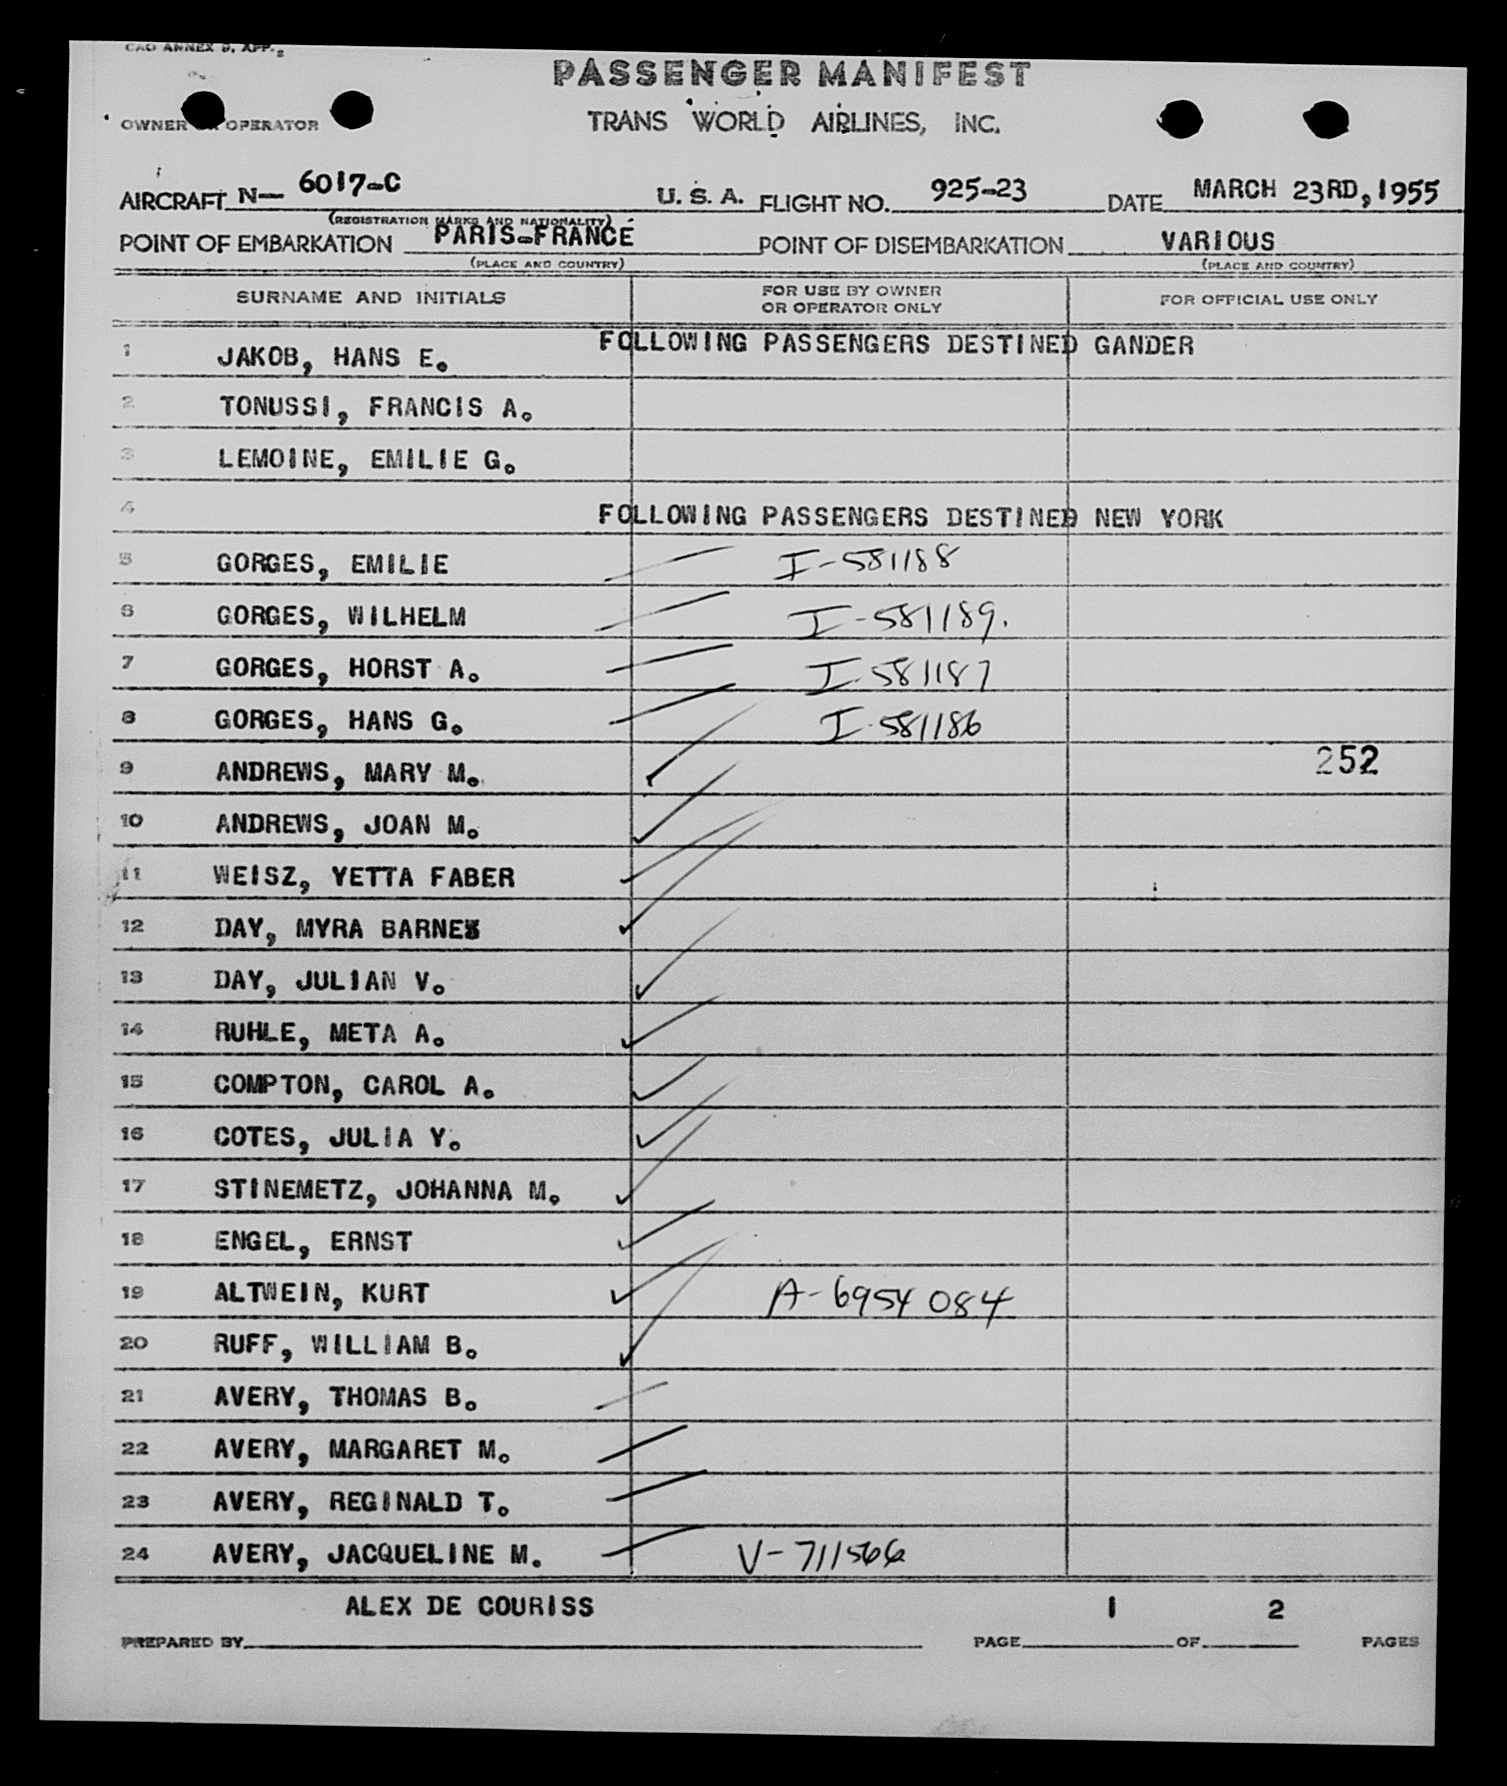 CAO ANNEX 9, APP. 2
PASSENGER MANIFEST
OWNER OR OPERATOR TRANS WORLD AIRLINES, INC.
AIRCRAFT N— 6017-C U. S. A. FLIGHT NO. 925-23 DATE MARCH 23RD, 1955
(REGISTRATION MARKS AND NATIONALITY)
POINT OF EMBARKATION PARIS-FRANCE POINT OF DISEMBARKATION VARIOUS
(PLACE AND COUNTRY) (PLACE AND COUNTRY)
SURNAME AND INITIALS FOR USE BY OWNER OR OPERATOR ONLY FOR OFFICIAL USE ONLY
FOLLOWING PASSENGERS DESTINED GANDER
1 JAKOB, HANS E.
2 TONUSSI, FRANCIS A.
3 LEMOINE, EMILIE G.
4 FOLLOWING PASSENGERS DESTINED NEW YORK
5 GORGES, EMILIE I-581188
6 GORGES, WILHELM I-581189.
7 GORGES, HORST A. I-581187
8 GORGES, HANS G. I-581186
9 ANDREWS, MARY M. 252
10 ANDREWS, JOAN M.
11 WEISZ, YETTA FABER
12 DAY, MYRA BARNES
13 DAY, JULIAN V.
14 RUHLE, META A.
15 COMPTON, CAROL A.
16 COTES, JULIA Y.
17 STINEMETZ, JOHANNA M.
18 ENGEL, ERNST
19 ALTWEIN, KURT A-6954 084
20 RUFF, WILLIAM B.
21 AVERY, THOMAS B.
22 AVERY, MARGARET M.
23 AVERY, REGINALD T.
24 AVERY, JACQUELINE M. V-711566
ALEX DE COURISS 1 2
PREPARED BY PAGE OF PAGES